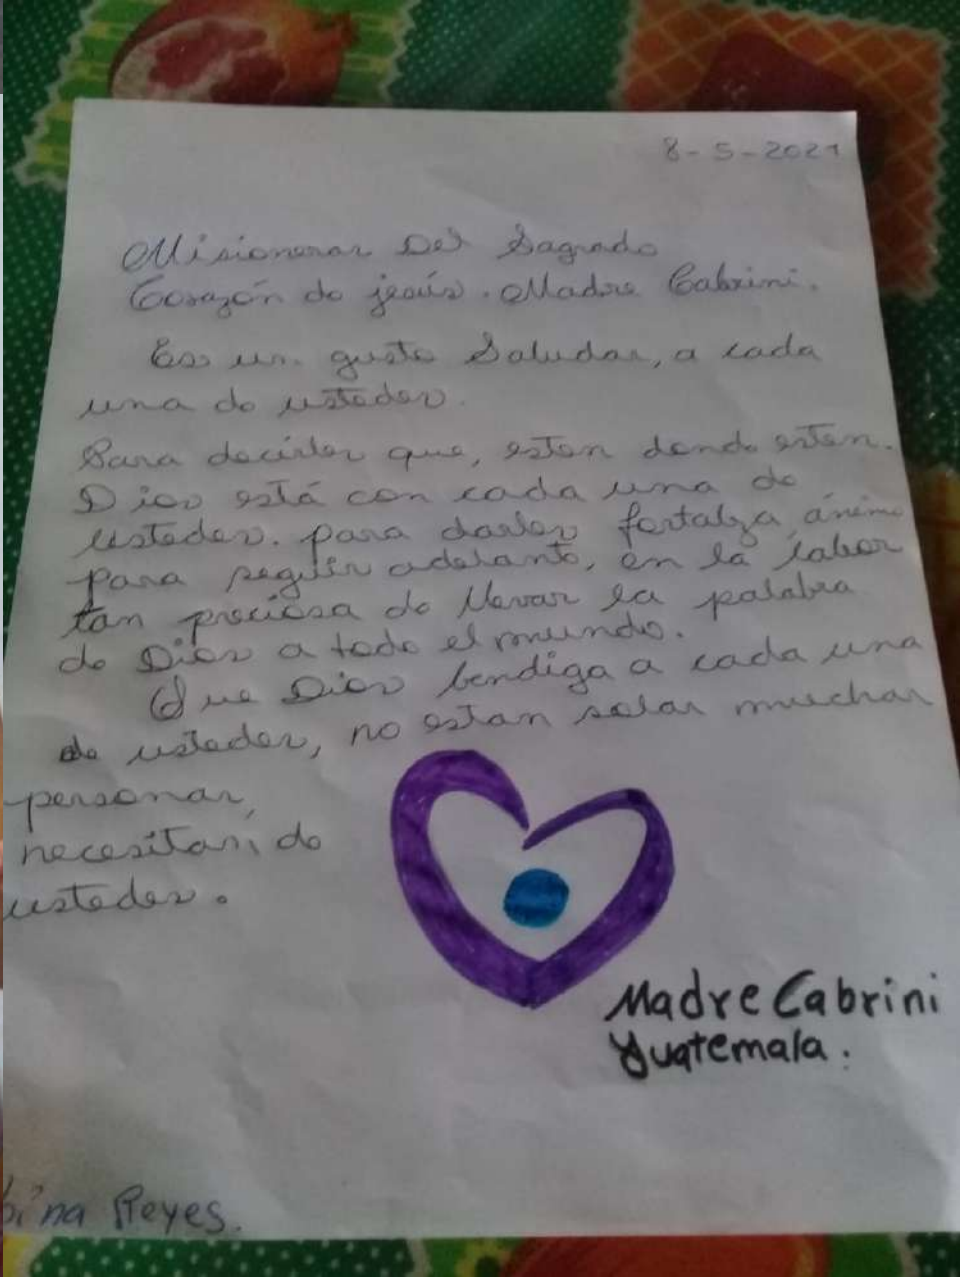 8-5-2021
Misioneras Del Sagrado
Corazón de jesús. Madre Cabrini.
Es un gusto Saludar, a cada
una de ustedes.
Para decirles que, esten donde esten.
Dios está con cada una de
ustedes. para darles fortalza, ánimo
para seguir adelante, en la labor
tan preciosa de llevar la palabra
de Dios a todo el mundo.
Que Dios bendiga a cada una
de ustedes, no estan solas muchas
personas,
necesitan, de
ustedes.
Madre Cabrini
Guatemala.
bina Reyes.